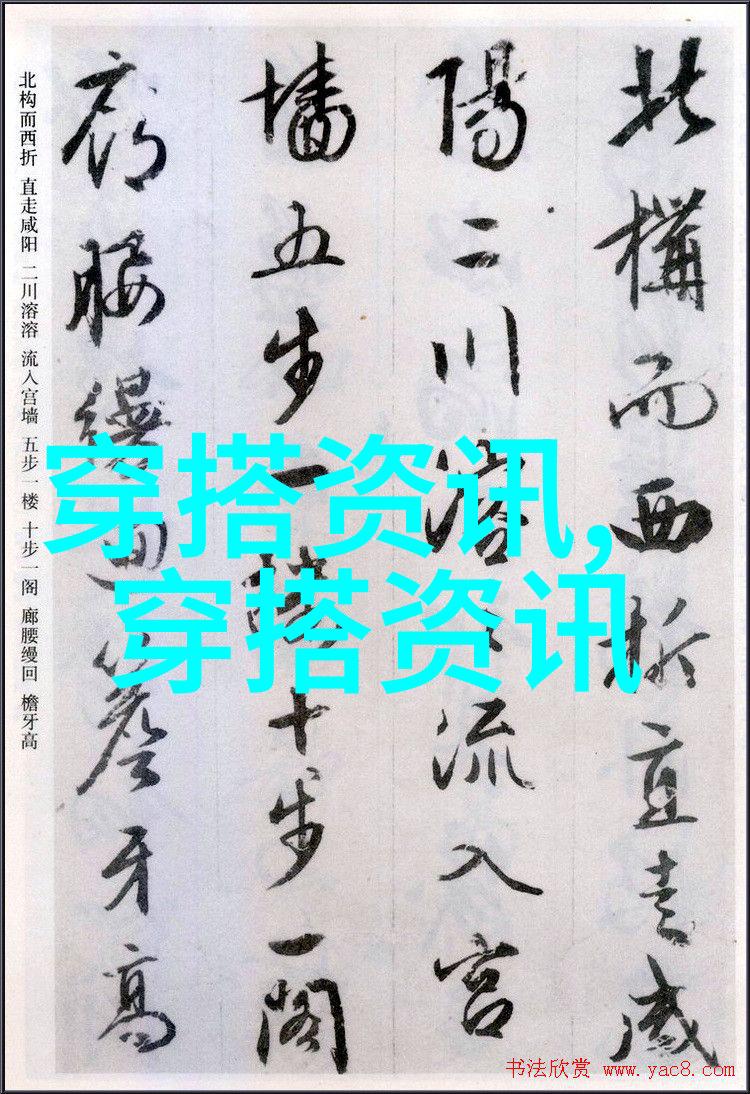 北構而西折直走咸
陽二川溶々流入宮
墻五步一樓十步一閣
廊腰縵迴簷牙高
北构而西折 直走咸阳 二川溶溶 流入宫墙 五步一楼 十步一阁 廊腰缦回 檐牙高
穿搭资讯,
穿搭资讯
书法欣赏 www.yac8.com